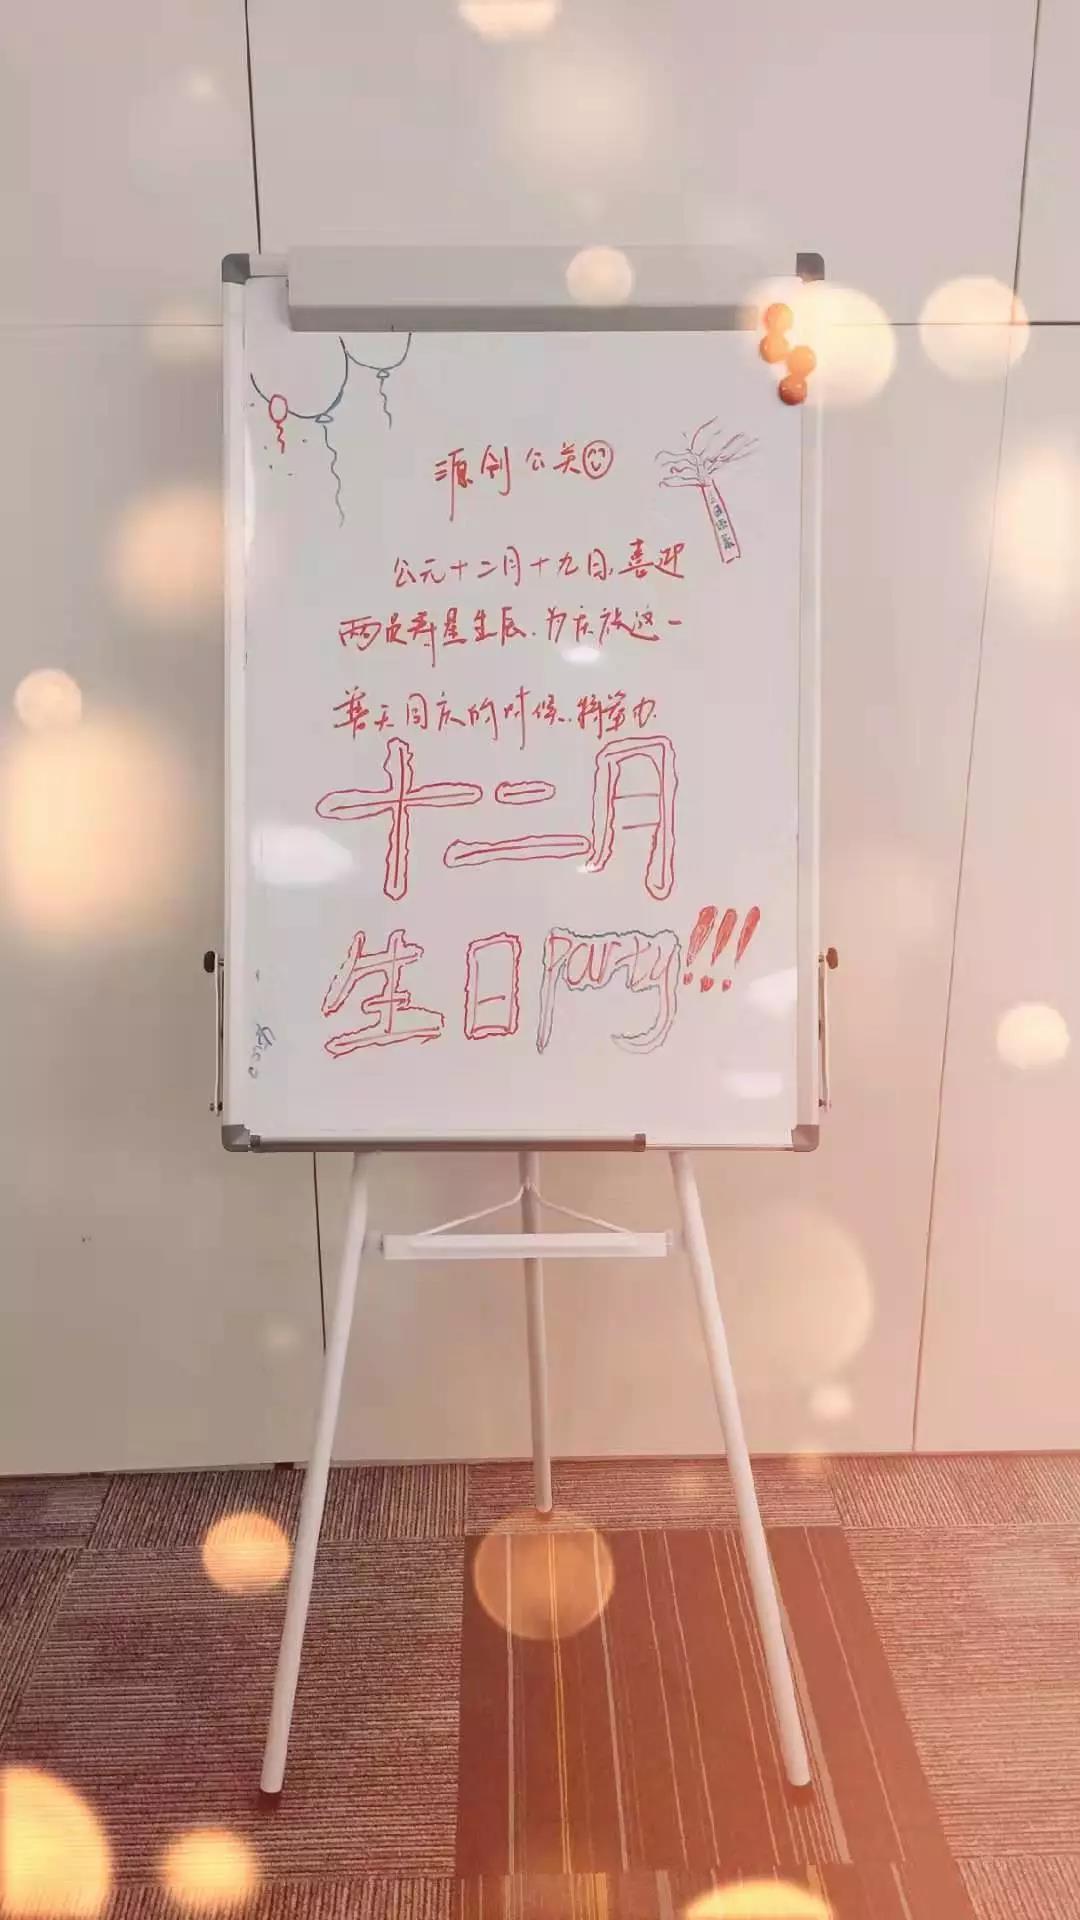 源创公关
公元十二月十九日,喜迎
两员寿星生辰.为庆祝这一
普天同庆的时候.将举办.
十二月
生日party!!!